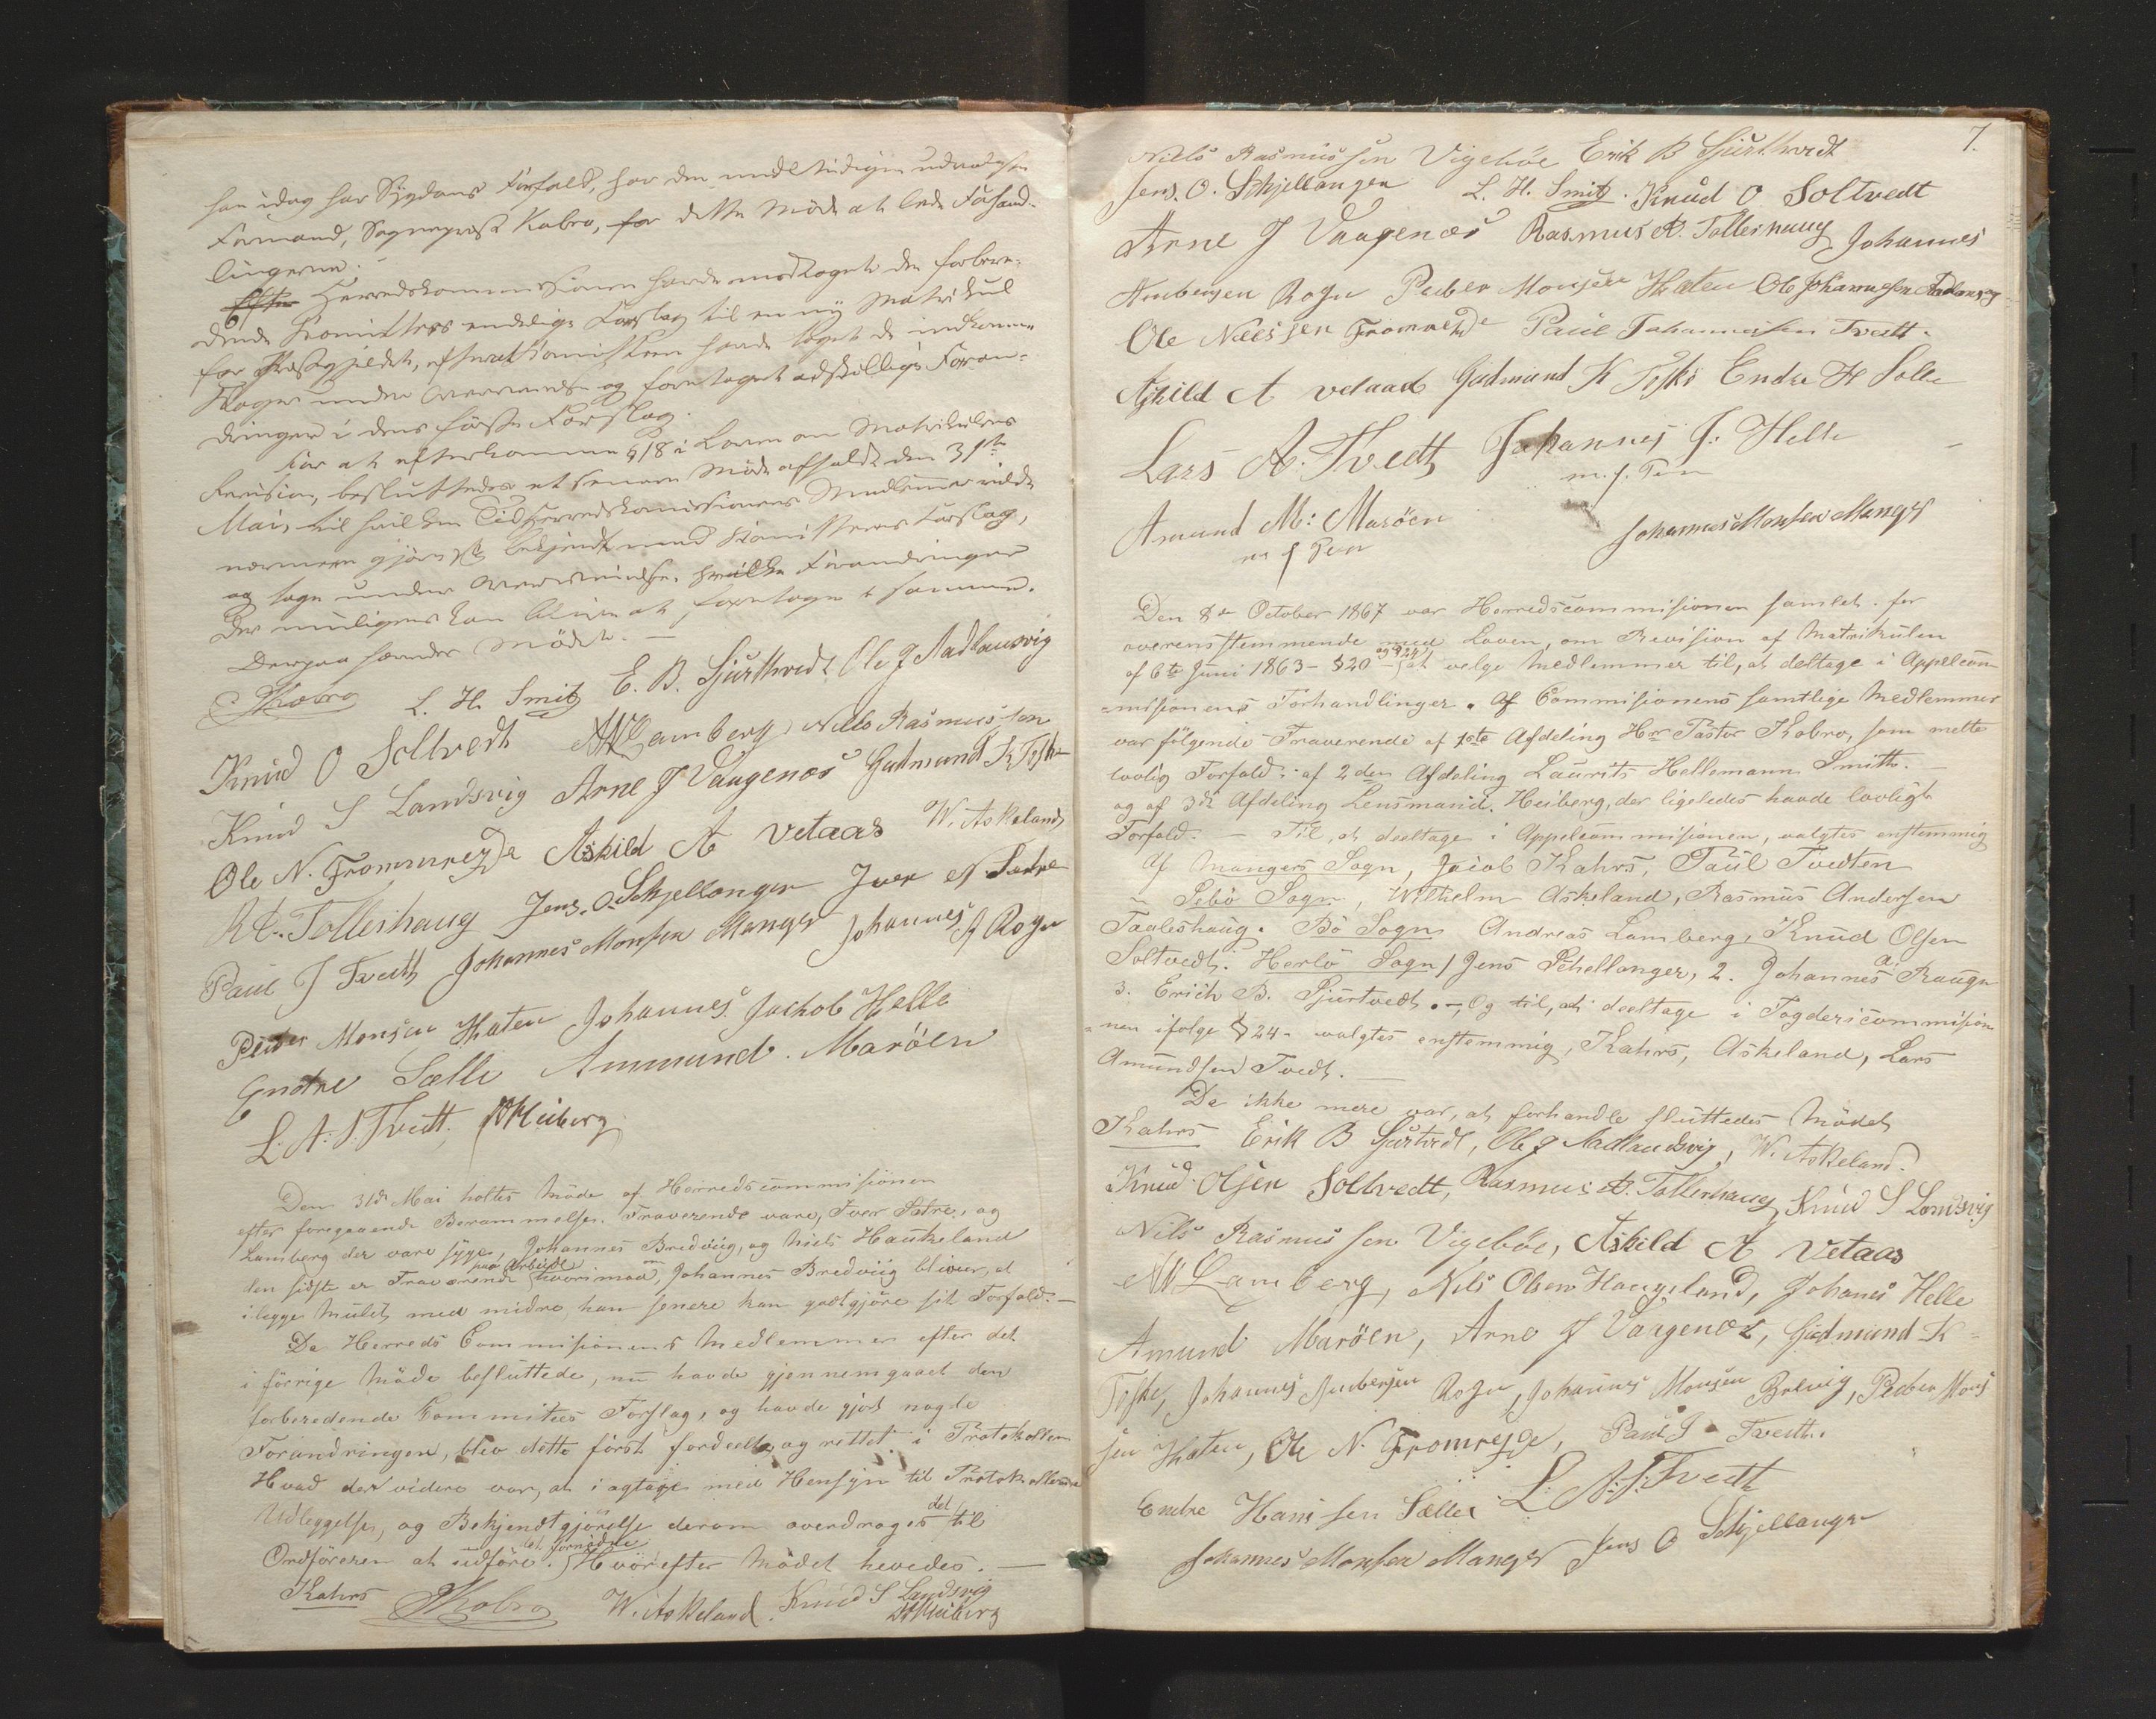 han idag har Sygdoms Forfald, har den midlertidigen udvalgte
Formand, Sognepræst Kobro, for dette Møde at lede Forhand-
lingerne. –
Efter Herredskommissionen havde modtaget den forbere-
dende Komittees endelige Forslag til en ny Matrikul
for Præstegjeldet, efterat Komitteen havde taget de indkomne
Klager under Overveielse og foretaget adskillige Foran-
dringer i dens første Forslag.
For at efterkomme §18 i Loven om Matrikulens
Revision, besluttedes et senere Møde afholdt den 31te
Mai, til hvilken Tid Herredskomissionens Medlemmer vilde
nærmere gjøre sig bekjendt med Komitteens Forslag,
og tage under Overveielse, hvilke Forandringer
der muligens kan blive at foretage i samme.
Derpaa hævedes Mødet. –
Kobro L. H. Smith E. B. Sjurthvedt Ole J Aadlandsvig
Knud O Soltvedt AW Lamberg Nills Rasmussen
Knud S Landsvig Arne J Vaagenæs Gudmund K Toske
Ole N. Fromreyde Askild A Vetaas W. Askeland
R A. Tolleshaug Jens. O. Schjellanger Iver N Sætre
Paul J Tvedt Johannes Monsen Manger Johannes A Rogn
Peder Monsen Haten Johannes Jackob Helle
Endre Sælle Ammund. Marøen
L. A. S. Tvedt, Heiberg
Den 31te Mai holtes Møde af Herredscommisionen
efter foregaaende Berammelse. Fraverende vare, Iver Sætre, og
Lamberg der vare syge, Johannes Bredviig, og Niels Haukeland
den sidste er Fraværende paa Arbeide hvorimod, Johannes Bredviig bliver, at
ilegge Mulct, med midre han senere kan godtgjøre sit Forfald. –
Da Herreds Commisionens Medlemmer efter det
i forrige Møde besluttede, nu havde gjennemgaaet den
forberedende Commitees Forslag, og havde gjort nogle
Forandringer, blev dette først fordeelt, og rettet i Protokollen
Hvad der videre var, at iagtage med Hensyn til Protokollernes
Udleggelse, og Bekjendtgjørelse derom overdroges det til
Ordføreren at udføre det fornødne. Hvorefter Mødet hevedes. –
Kahrs Kobro W. Askeland. Knud S Landsvig
Heiberg
7.
Nills Rasmussen Vigebøe Erik B Sjurthvedt
Jens. O. Schjellanger L. H. Smith. Knud O Soltvedt
Arne J Vaagenæs Rasmus A. Tolleshaug Johannes
Ambersen Rogn Peder Monsen Haten Ole Johannessen Aadlansvig
Ole Nilssen Fromreyde Paul Johannessen Tvedt.
Askild A Vetaas Gudmund K Toske Endre H Selle
Lars A. Tvedt Johannes J. Helle
m. f. Pen
Amund M: Marøen Johannes Monsen Manger
m f Pen
Den 8de October 1867 var Herredscommisionen samlet. for
overensstemmende med Loven, om Revision af Matrikulen
af 6te Juni 1863 – §20 og §24 – at velge Medlemmer til, at deltage i Appelcom-
=misionens Forhandlinger. Af Commisionens samtlige Medlemmer
var følgende Fraverende af 1ste Afdeling Hr Pastor Kobro, som mette
lovlig Forfald; af 2den Afdeling Laurits Hellemann Smith. –
og af 3de Afdeling Lensmand. Heiberg, der ligeledes havde lovligt
Forfald. – Til, at deeltage i Appelcommisionen, valgtes enstemmig
Af Mangers Sogn, Jacob Kahrs, Paul Tvedten
" Sebø Sogn, Wilhelm Askeland, Rasmus Andersen
Taaleshaug. Bø Sogn Andreas Lamberg, Knud Olsen
Soltvedt. Herlø Sogn / Jens Schellanger, 2. Johannes A. Raugn
3. Erich B. Sjurtvedt. –, Og til, at deeltage i Fogdericommision
=nen ifølge §24 – valgtes enstemmig, Kahrs, Askeland, Lars
Amundsen Tvedt. –
Da ikke mere var, at forhandle sluttedes Mødet
Kahrs Erik B Sjurtvedt, Ole J Aadlandsvig, W. Askeland.
Knud Olsen Soltvedt, Rasmus A. Tolleshaug, Knud S Landsvig
Nils Rasmussen Vigebøe, Askild A Vetaas
AW Lamberg, Nils Olsen Haugeland, Johanes Helle
Amund Marøen, Arne J Vaagenæs, Gudmund K
Toske, Johannes Ambersen Rogn, Johannes Monsen Brævig, Peder Mons
sen Haten, Ole N. Fromreyde, Paul J Tvedt.
Endre Hanssen Sælle L. A. S. Tvedt
Johannes Monsen Manger Jens O Schjellanger